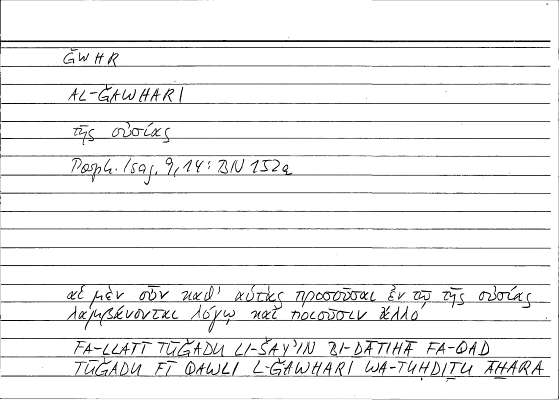 ǦWHR
AL-ǦAWHARI
τῆς οὐσίας
Porph. Isag. 9,14: BN 152a
αἱ μὲν οὖν καθ' αὑτὰς προσοῦσαι ἐν τῷ τῆς οὐσίας
λαμβάνονται λόγῳ καὶ ποιοῦσιν ἄλλο
FA-LLATĪ TŪǦADU LI-ŠAYʾIN BI-ḎĀTIHĀ FA-QAD
TŪǦADU FĪ QAWLI L-ǦAWHARI WA-TUḤDIṮU ĀḪARA